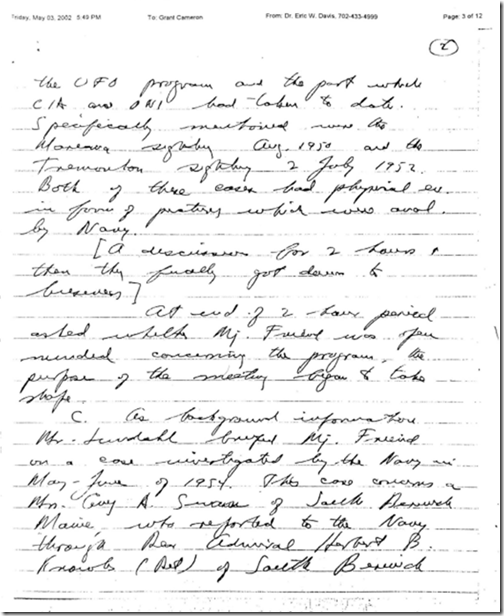 Friday, May 03, 2002 5:49 PM To: Grant Cameron From: Dr. Eric W. Davis, 702-433-4999 Page: 3 of 12
2
the UFO program and the part which
CIA and ONI had taken to date.
Specifically mentioned were the
Mariana sighting Aug. 1950 and the
Tremonton sighting 2 July 1952.
Both of these cases had physical ev.
in form of pictures which were aval.
by Navy.
[A discussion for 2 hours &
then they finally got down to
business]
At end of 2 hour period
asked whether Mj. Friend was open
minded concerning the program, the
purpose of the meeting began to take
shape.
C. As background information
Mr. Lundahl briefed Mj. Friend
on a case investigated by the Navy in
May-June of 1954. This case concerns a
Mrs. Guy A. Swan of South Berwick
Maine, who reported to the Navy
through Rear Admiral Herbert B.
Knowles (Ret) of South Berwick